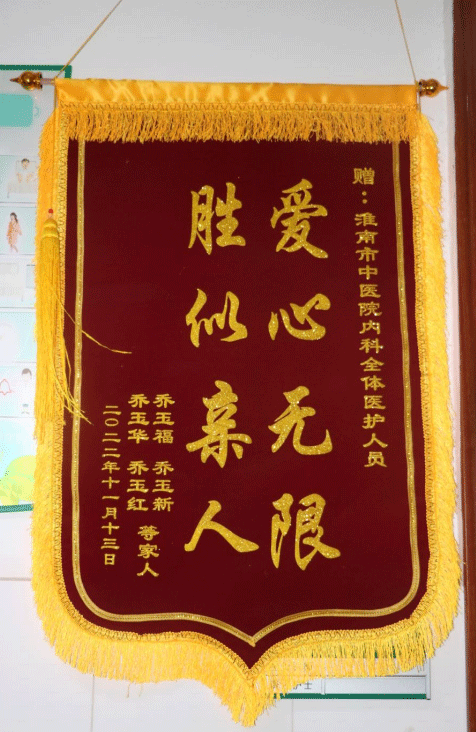 赠：淮南市中医院内科全体医护人员
爱心无限
胜似亲人
乔玉福 乔玉新
乔玉华 乔玉红 等家人
二〇二二年十一月十三日
护士